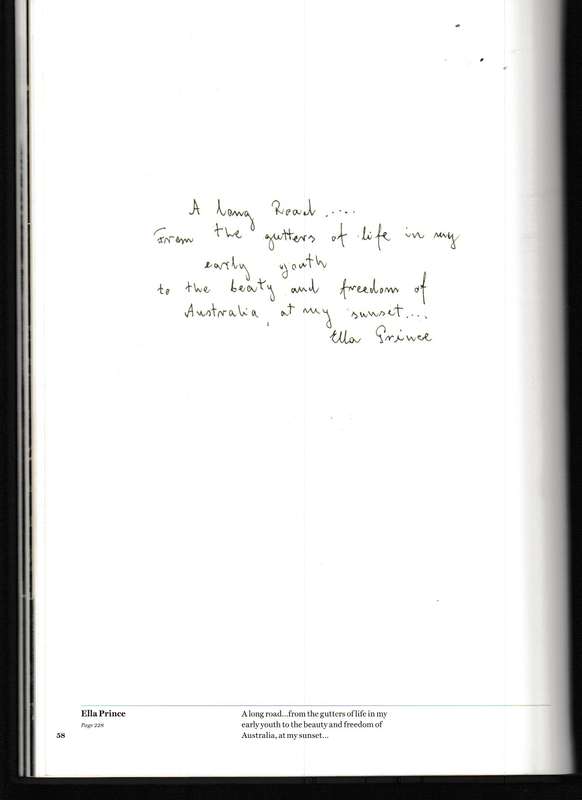 A long Road .....
From the gutters of life in my
early youth
to the beaty and freedom of
Australia, at my sunset....
Ella Prince
Ella Prince
Page 228
58
A long road...from the gutters of life in my
early youth to the beauty and freedom of
Australia, at my sunset...